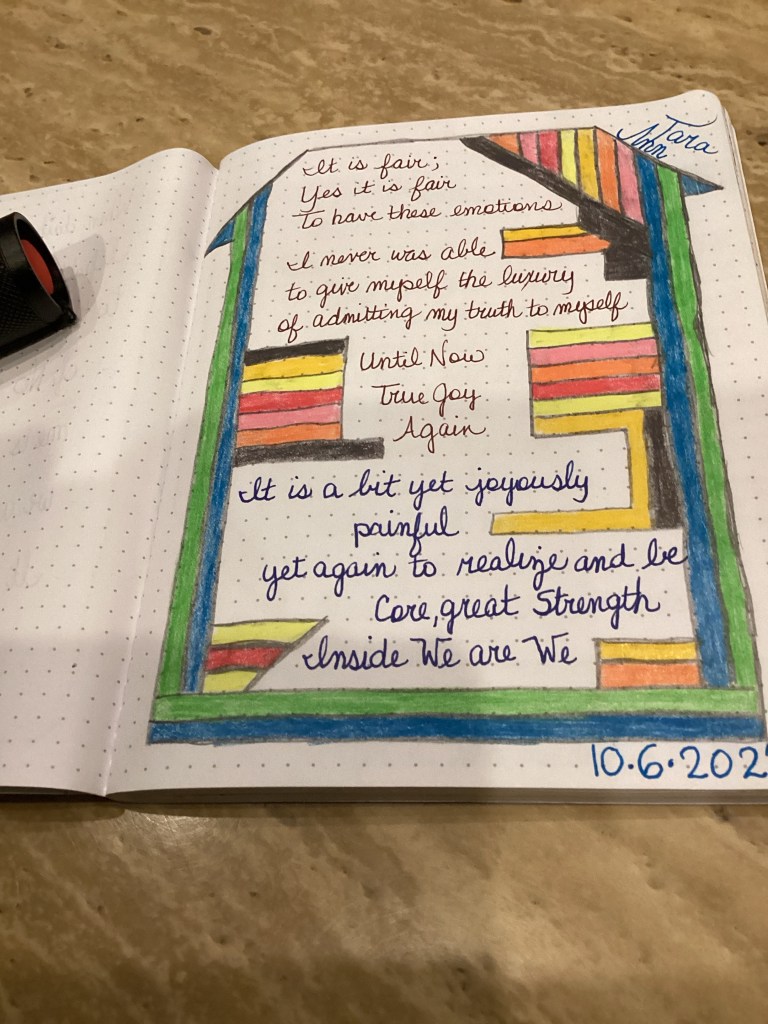 Tara
Ann
It is fair;
Yes it is fair
To have these emotions
I never was able
to give myself the luxury
of admitting my truth to myself
Until Now
True Joy
Again
It is a bit yet joyously
painful
yet again to realize and be
Core, great Strength
Inside We are We
10.6.202